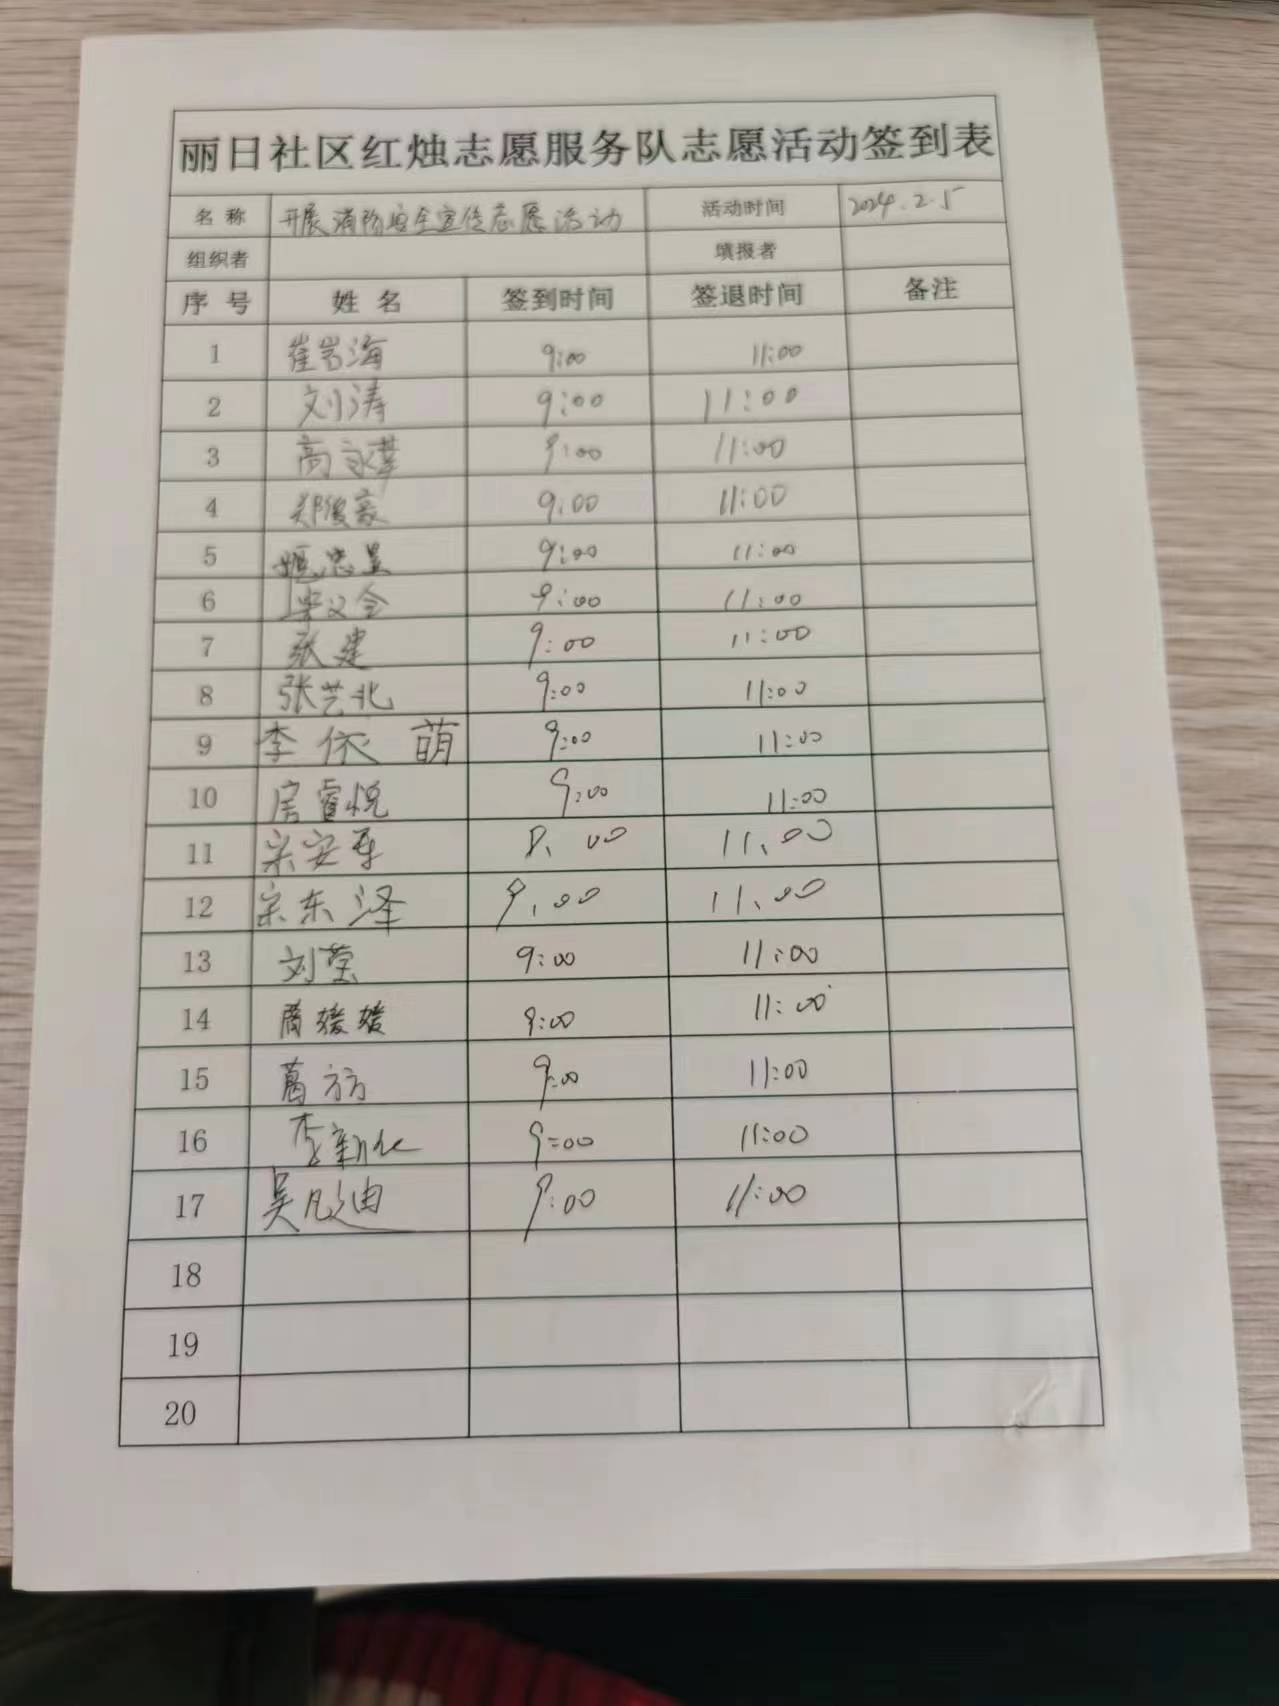 丽日社区红烛志愿服务队志愿活动签到表
名称 开展消防安全宣传志愿活动 活动时间 2024.2.5
组织者 填报者
序号 姓名 签到时间 签退时间 备注
1 崔岩海 9:00 11:00
2 刘涛 9:00 11:00
3 高永華 9:00 11:00
4 郑俊豪 9:00 11:00
5 9:00 11:00
6 9:00 11:00
7 张建 9:00 11:00
8 张艺北 9:00 11:00
9 李依萌 9:00 11:00
10 房睿悦 9:00 11:00
11 宗安 11.00
12 宗东泽 9.00 11.00
13 刘莹 9:00 11:00
14 媛媛 9:00 11:00
15 葛方方 9:00 11:00
16 李新 9:00 11:00
17 吴凡迪 9:00 11:00
18
19
20